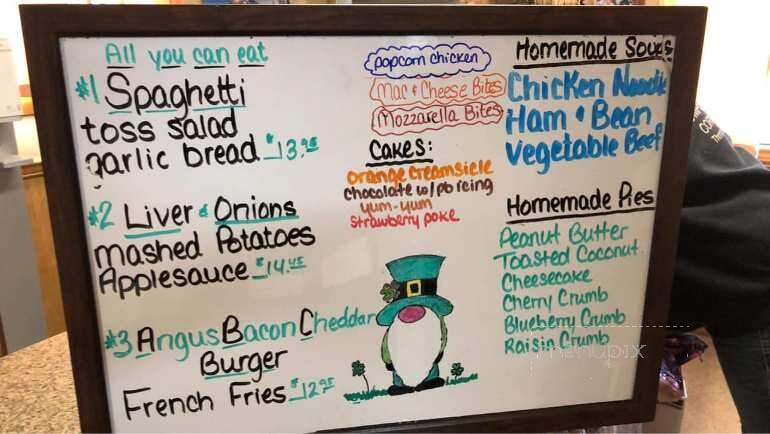 All you can eat
#1 Spaghetti
toss salad
garlic bread $13.95
#2 Liver & Onions
mashed Potatoes
Applesauce $14.45
#3 Angus Bacon Cheddar
Burger
French Fries $12.95
popcorn chicken
Mac & Cheese Bites
Mozzarella Bites
Cakes:
orange creamsicle
chocolate w/pb icing
yum-yum
strawberry poke
Homemade Soups
Chicken Noodle
Ham & Bean
Vegetable Beef
Homemade Pies
Peanut Butter
Toasted Coconut
Cheesecake
Cherry Crumb
Blueberry Crumb
Raisin Crumb
menupix